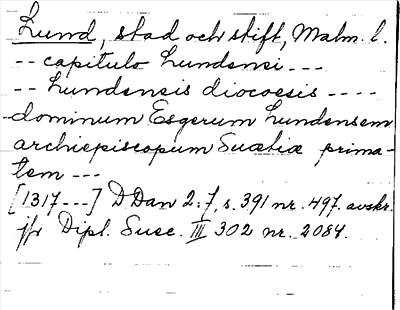 Lund, stad och stift, Malm. l.
-- capitulo Lundensi ---
-- Lundensis diocoesis ----
dominum Esgerum Lundensem
archiepiscopum Suætiæ prima-
tem ---
[1317---] DDan 2:7, s. 391 nr. 497. avskr.
jfr Dipl. Suec. III 302 nr. 2084.